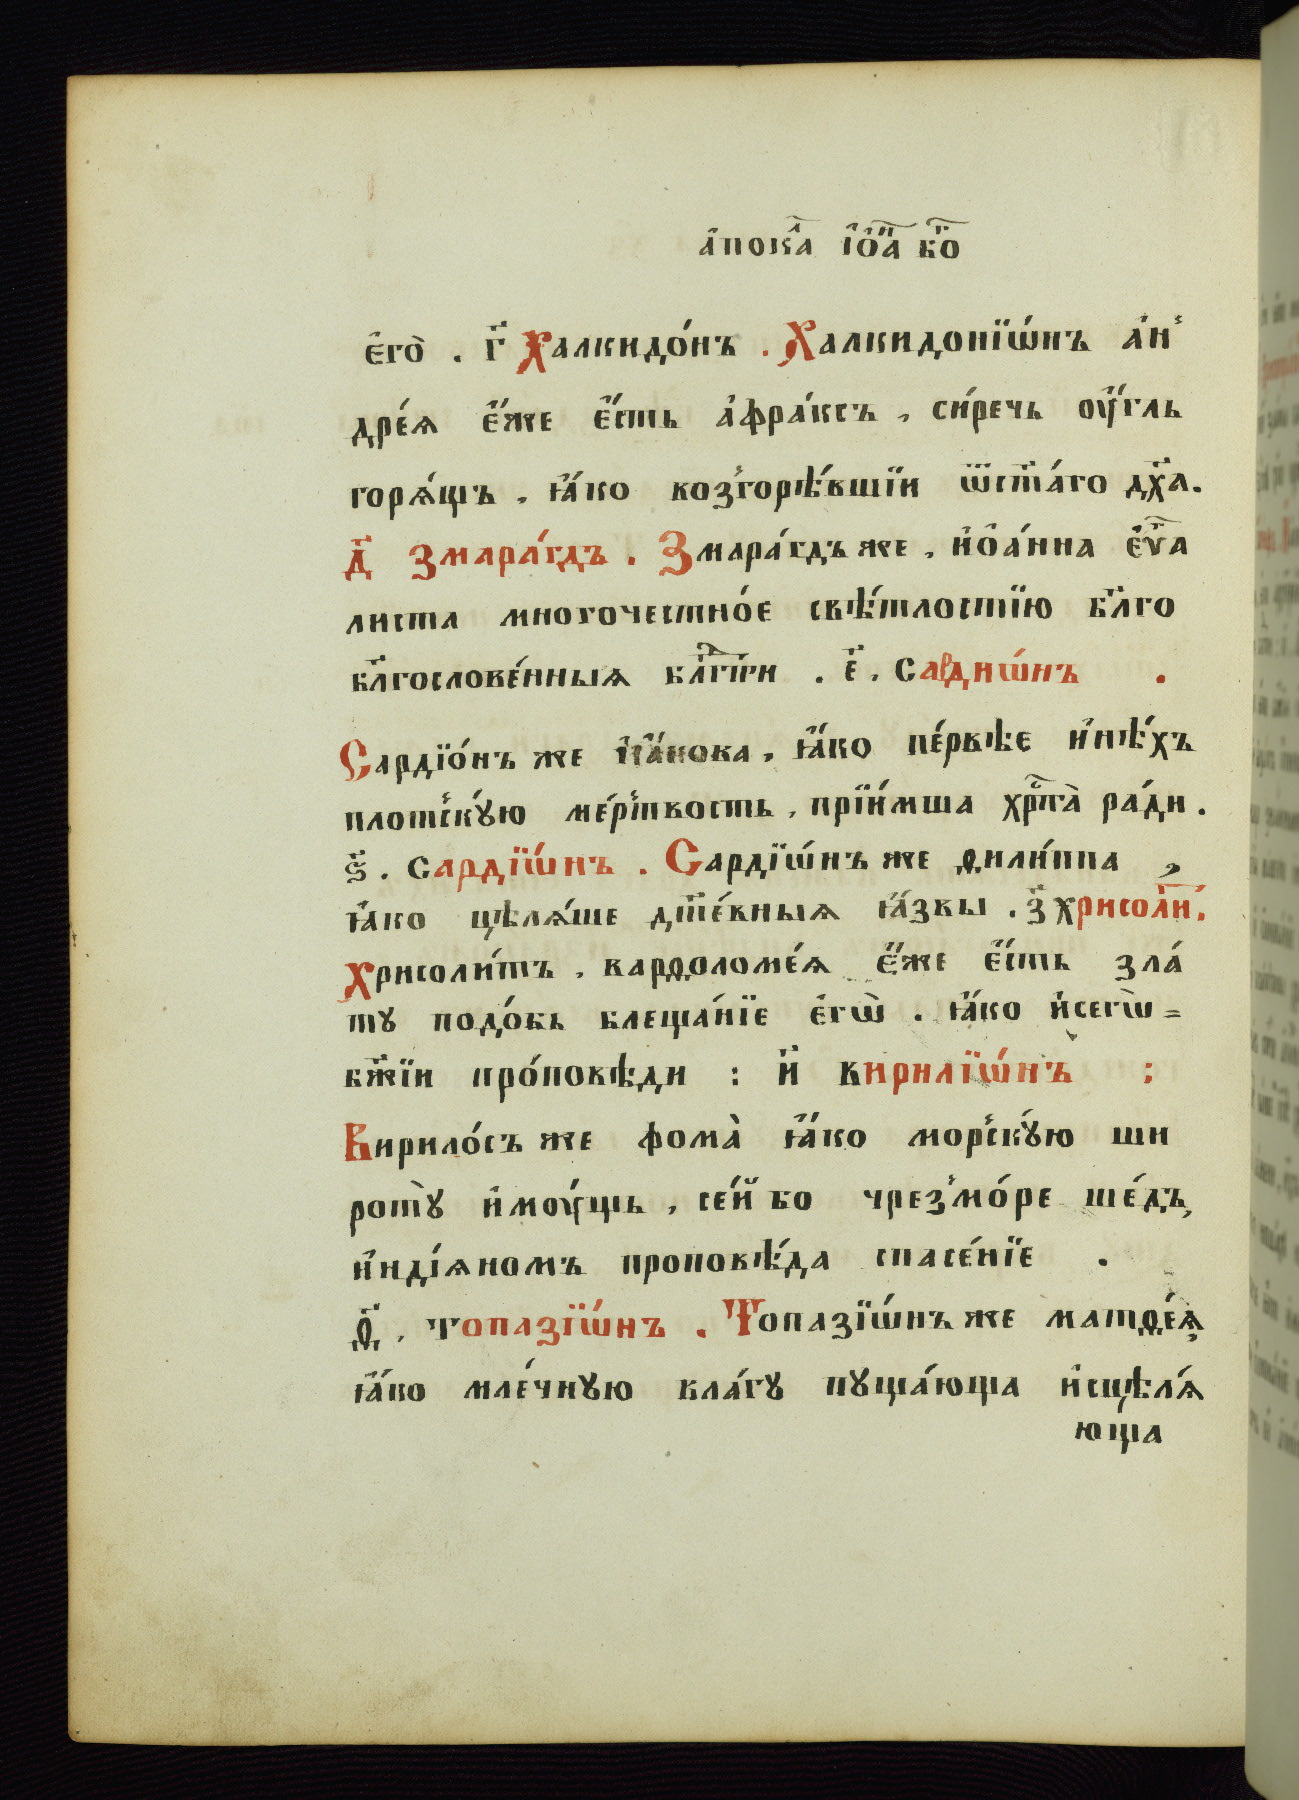 а҆пока҃л і҆ѡ҃а бг҃о
є҆го̀ . г҃ Халкидо́нъ . Халкидонїѡ́нъ а҆н
дре́я є҆́же є҆́сть а҆фра́ксъ , си́речь оу҆́гль
горя́щъ , ꙗ҆́ко возгорѣ́вшїи ѿст҃а́го дх҃а .
д҃ Змара́гдъ . Змара́гдъ же , и҆ѡ҆а́нна є҆ѵ҃а
листа многочестно́е свѣ́тлостїю бл҃го
бл҃гослове́нныя бл҃гт҃и . є҃ , Сардиѡ́нъ .
Сардїо́нъ же и҆ꙗ҆́кова , ꙗ҆́ко пе́рвѣе и҆нѣ́хъ
плотскꙋю ме́ртвость , прїи́мша хрⷭ҇та̀ ра́ди .
ѕ҃ . Сардїѡ́нъ . Сардїѡ́нъ же ѳили́ппа
ꙗ҆́ко цѣля́ше дш҃е́вныя ꙗ҆́звы . з҃ хрисоли́ .
Хрисоли́тъ , варѳоломе́я є҆́же є҆́сть зла́
тꙋ подо́бь блеща́нїе є҆гѡ̀ . ꙗ҆́ко и҆сегѡ̀ =
бж҃їи про́повѣди : и҃ Вирилїѡ́нъ :
Вирило́съ же фома̀ ꙗ҆́ко морскꙋ́ю ши
ротꙋ̀ и҆моу́щь , се́й бо чрезмо́ре ше́дъ ,
и҆ндїя́номъ проповѣ́да спасе́нїе .
ѳ҃ , Топазїѡ́нъ . Топазїѡ́нъ же матѳе́я ,
ꙗ҆́ко мле́чнꙋю вла́гꙋ пꙋща́юща и҆сцѣля́
юща